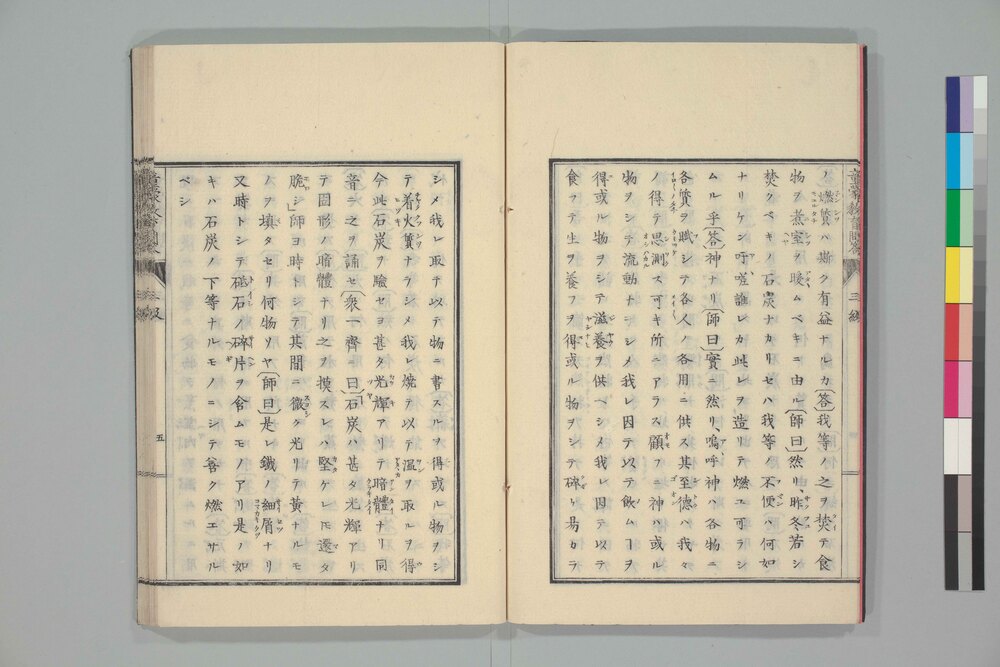 ノ燃質ハ斯ク有益ナルカ〔答〕我等ノ之ヲ焚テ食
物ヲ煮室ヲ暖ムベキニ由ル〔師曰〕然リ昨冬若シ
焚クベキノ石炭ナカリセハ我等ノ不便ハ何如
ナリケン吁嗟誰レカ此レヲ造リテ燃ユ可ラシ
ムル乎〔答〕神ナリ〔師曰〕實ニ然リ嗚呼神ハ各物ニ
各質ヲ職シテ各人ノ各用ニ供ス其至德ハ我々
ノ得テ思測ス可キ所ニアラス顧フニ神ハ或ル
物ヲシテ流動ナラシメ我レ因テ以テ飲ムヿヲ
得或ル物ヲシテ滋養ヲ供ベシメ我レ因テ以テ
食フテ生ヲ養フヲ得或ル物ヲシテ碎ケ易カラ
三編
シメ我レ取テ以テ物ニ書スルヲ得或ル物ヲシ
テ着火質ナラシメ我レ燒テ以テ温ヲ取ルヲ得
今此石炭ヲ驗セヨ甚タ光輝アリテ暗體ナリ同
音ニ之ヲ誦セ〔衆一齊ニ曰〕石炭ハ甚タ光輝アリ
テ固形ノ暗體ナリ之ヲ摸スレハ堅ケレ𪜈還タ
脆シ〔師ヨ時トシテ其間ニ微ク光リテ黄ナルモ
ノヲ填タセリ何物ソヤ〔師曰〕是レ鐵ノ細屑ナリ
又時トシテ砥石ノ碎片ヲ含ムモノアリ是ノ如
キハ石炭ノ下等ナルモノニシテ善ク燃エサル
ベシ
五